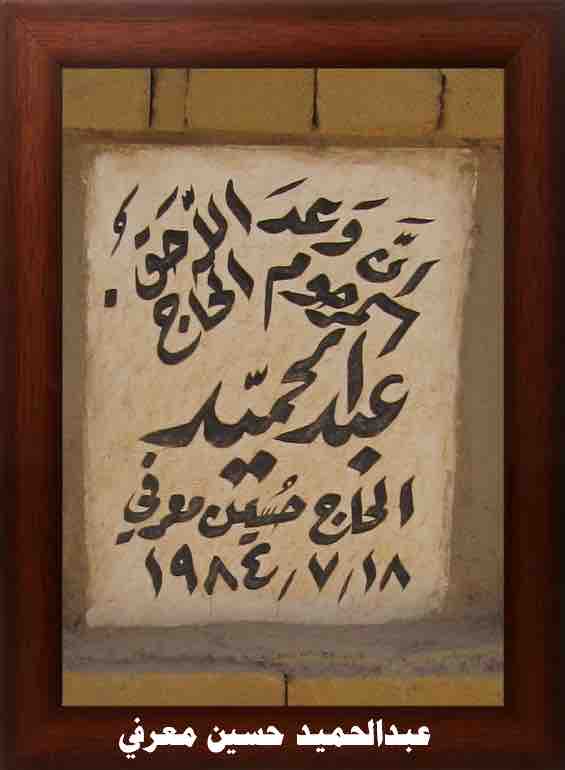 إنّ وَعدَ اللّه حَق
المرحوم الحاج
عبد الحميّد
الحاج حُسين معرفي
١٩٨٤/٧/١٨
عبدالحميد حسين معرفي